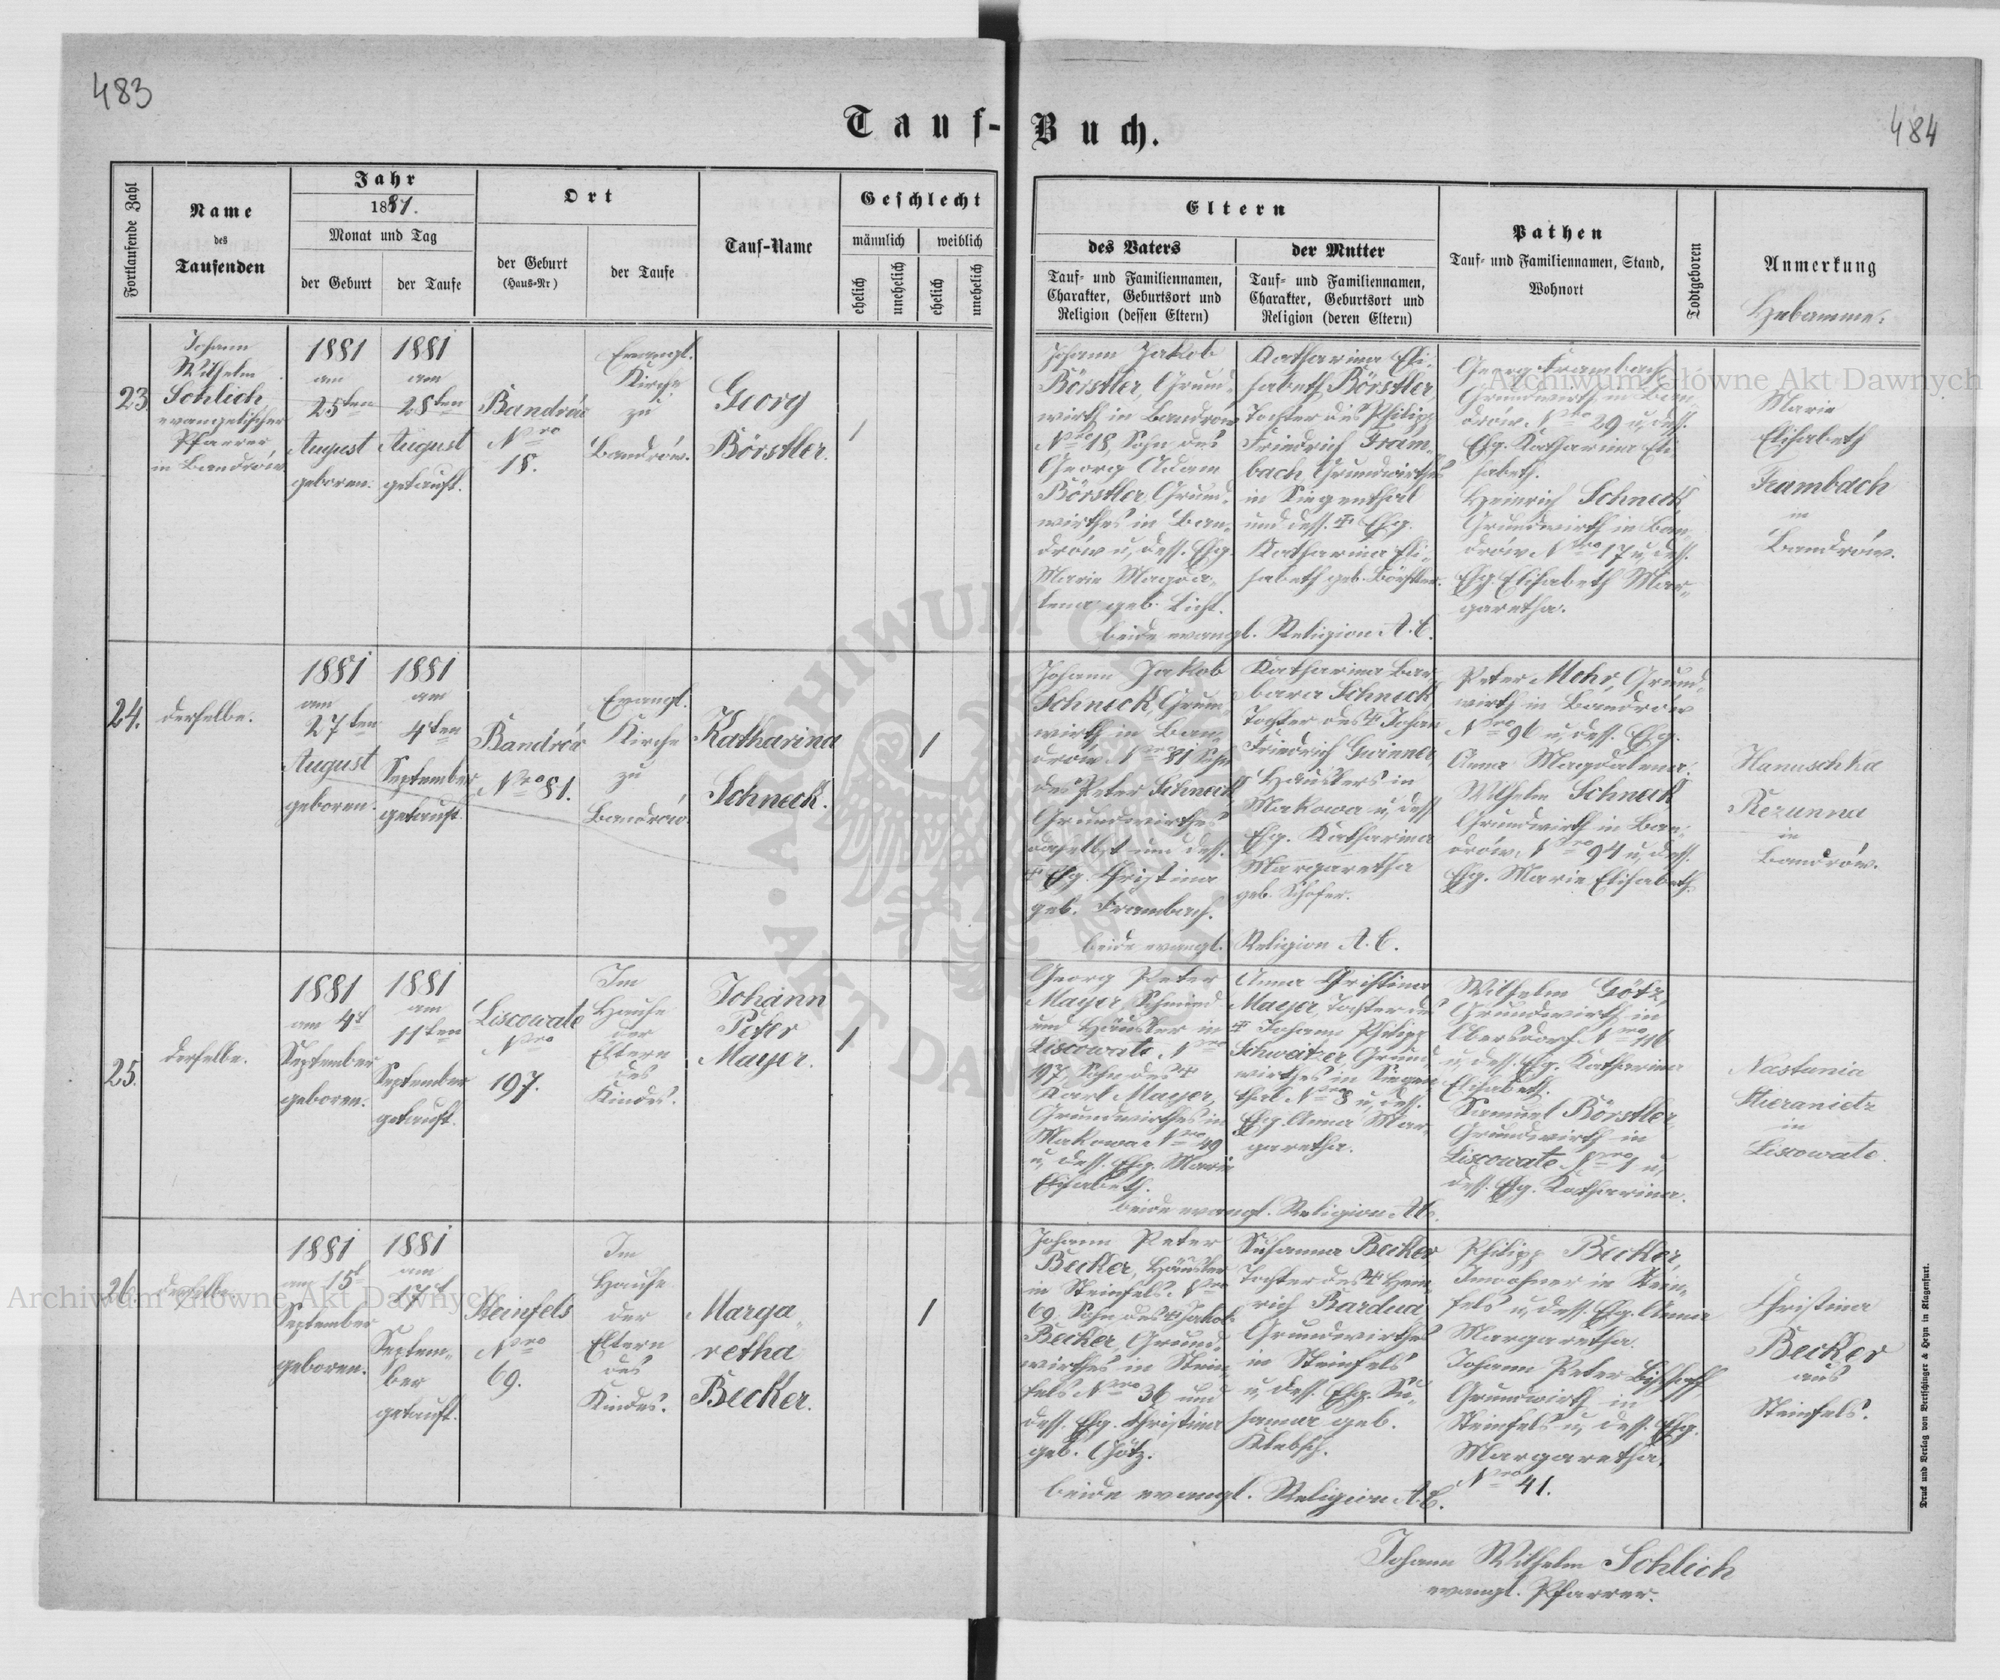 483
484
Tauf-Buch.
Fortlaufende Zahl
Name
des
Taufenden
Jahr
1881.
Monat und Tag
der Geburt
der Taufe
Ort
der Geburt
(Haus-Nr)
der Taufe
Tauf-Name
Geschlecht
männlich
weiblich
ehelich
unehelich
ehelich
unehelich
Eltern
des Vaters
Tauf- und Familiennamen,
Charakter, Geburtsort und
Religion (dessen Eltern)
der Mutter
Tauf- und Familiennamen,
Charakter, Geburtsort und
Religion (deren Eltern)
Pathen
Tauf- und Familiennamen, Stand,
Wohnort
Todtgeboren
Anmerkung
Hebamme.
23.
Johann
Wilhelm
Schlich,
evangelischer
Pfarrer
in Bandrów
1881
am
25ten
August
geboren.
1881
am
28ten
August
getauft.
Bandrów
Nro
18.
Evangl.
Kirche
zu
Bandrów.
Georg
Börstler.
1
Johann Jakob
Börstler, Grund-
wirth in Bandrów
Nro 18, Sohn des
Georg Adam
Börstler, Grund-
wirthes in Ban-
drów u. dess. Ehg.
Marie Magda-
lena geb. Licht.
Katharina Eli-
sabeth Börstler,
Tochter des Philipp
Friedrich Fram-
bach, Grundwirthes
in Siegenthal
und dess. † Ehg.
Katharina Eli-
sabeth geb. Börstler.
beide evangl. Religion A. C.
Georg Frambach
Grundwirth in Ban-
drów Nro 29 u. dess.
Ehg. Katharina Eli-
sabeth.
Heinrich Schneck,
Grundwirth in Ban-
drów Nro 17 u. dess.
Ehg. Elisabeth Mar-
garetha.
Marie
Elisabeth
Frambach
in
Bandrów.
24.
derselbe.
1881
am
27ten
August
geboren.
1881
am
4ten
September
getauft.
Bandrów
Nro 81.
Evangl.
Kirche
zu
Bandrów.
Katharina
Schneck.
1
Johann Jakob
Schneck, Grund-
wirth in Ban-
drów Nro 81 Sohn
des Peter Schneck
Grundwirthes
daselbst und dess.
† Ehg. Christina
geb. Frambach.
Katharina Bar-
bara Schneck,
Tochter des † Johann
Friedrich
Häuslers in
Makowa u. dess.
Ehg. Katharina
Margaretha
geb. Schäfer.
beide evangl. Religion A. C.
Peter Mohr, Grund-
wirth in Bandrów
Nro 96 u. dess. Ehg.
Anna Magdalena.
Wilhelm Schneck
Grundwirth in Ban-
drów, Nro 94 u. dess.
Ehg. Marie Elisabeth.
Hanuschka
Rezunna
in
Bandrów.
25.
derselbe.
1881
am 4t
September
geboren.
1881
am
11ten
September
getauft.
Liscowate
Nro
197.
Im
Hause
der
Eltern
des
Kindes.
Johann
Peter
Mayer.
1
Georg Peter
Mayer, Schmied
und Häusler in
Liscowate, Nro
197, Sohn des †
Karl Mayer,
Grundwirthes in
Makowa Nro 49
u. dess. Ehg. Marie
Elisabeth.
Anna Christina
Mayer, Tochter des
† Johann Philipp
Schweitzer, Grund-
wirthes in Siegen-
thal Nro 8 u. dess.
Ehg. Anna Mar-
garetha.
beide evangl. Religion A.C.
Wilhelm Götz,
Grundwirth in
Obersdorf Nro 116
u. dess. Ehg. Katharina
Elisabeth.
Samuel Börstler,
Grundwirth in
Liscowate Nro 1 u.
dess. Ehg. Katharina.
Nastunia
in
Liscowate.
26.
derselbe.
1881
am 15t
September
geboren.
1881
am
17t
Septem-
ber
getauft.
Steinfels
Nro
69.
Im
Hause
der
Eltern
des
Kindes.
Marga-
retha
Becker.
1
Johann Peter
Becker, Häusler
in Steinfels, Nro
69, Sohn des † Jakob
Becker, Grund-
wirthes in Stein-
fels Nro 36 und
dess. Ehg. Christina
geb. Götz.
Susanna Becker
Tochter des † Hein-
rich Bardua
Grundwirthes
in Steinfels
u. dess. Ehg. Su-
sanna geb.
Klebsch.
beide evangl. Religion A.C.
Philipp Becker,
Inwohner in Stein-
fels u. dess. Ehg. Anna
Margaretha.
Johann Peter Bischoff
Grundwirth in
Steinfels u. dess. Ehg.
Margaretha.
Nro 41.
Christina
Becker
aus
Steinfels.
Johann Wilhelm Schlich
evangl. Pfarrer.
Druck und Verlag von Bertschinger & Heyn in Klagenfurt.
Archiwum Główne Akt Dawnych
Archiwum Główne Akt Dawnych